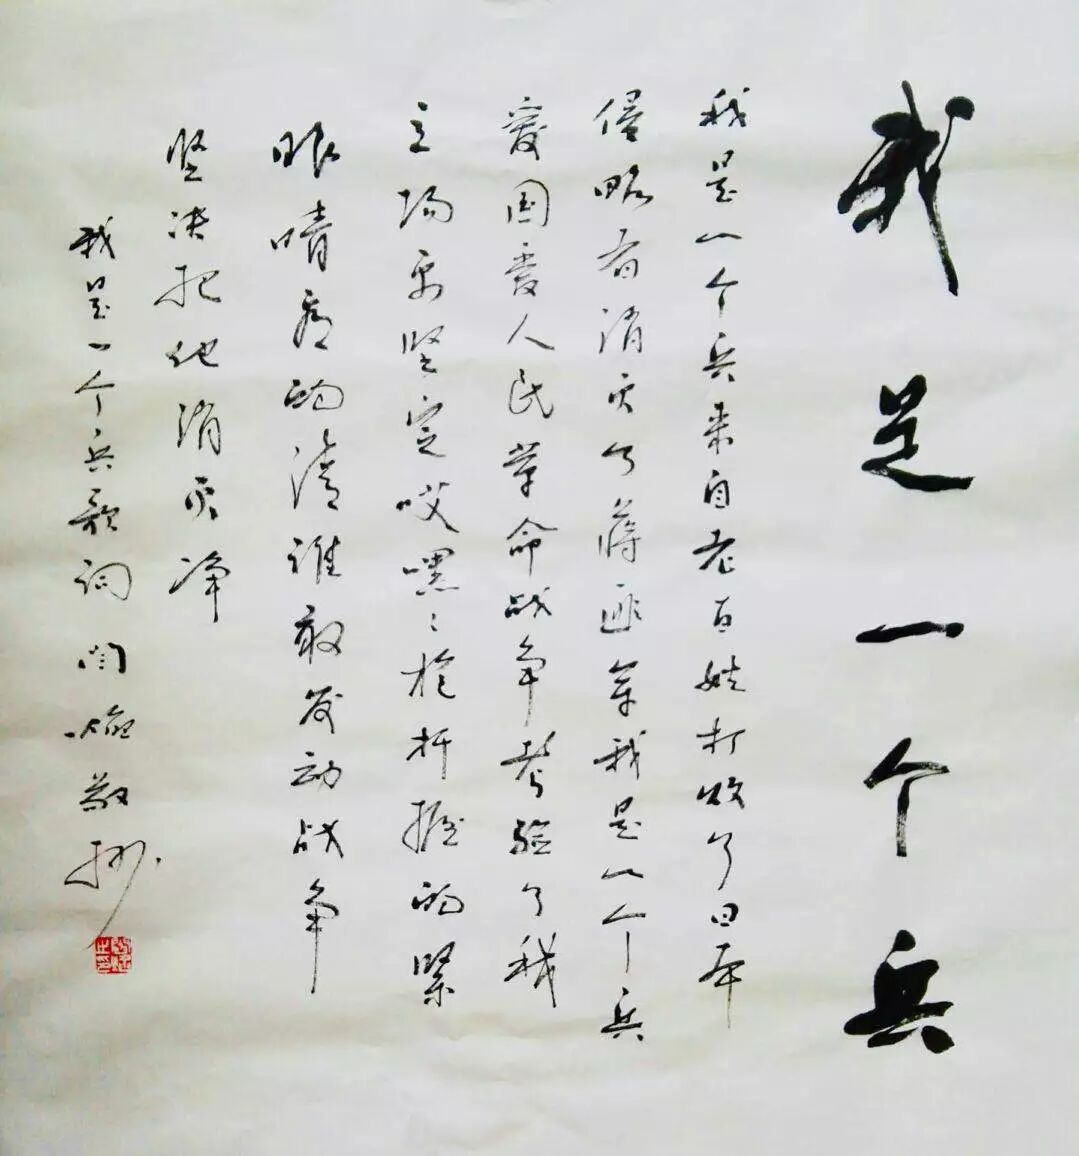 我是一个兵
我是一个兵来自老百姓打败了日本
侵略者消灭了蒋匪军我是一个兵
爱国爱人民革命战争考验了我
立场更坚定哎嘿々枪杆握的紧
眼睛看的清谁敢发动战争
坚决把他消灭净
我是一个兵歌词 闫敬抄